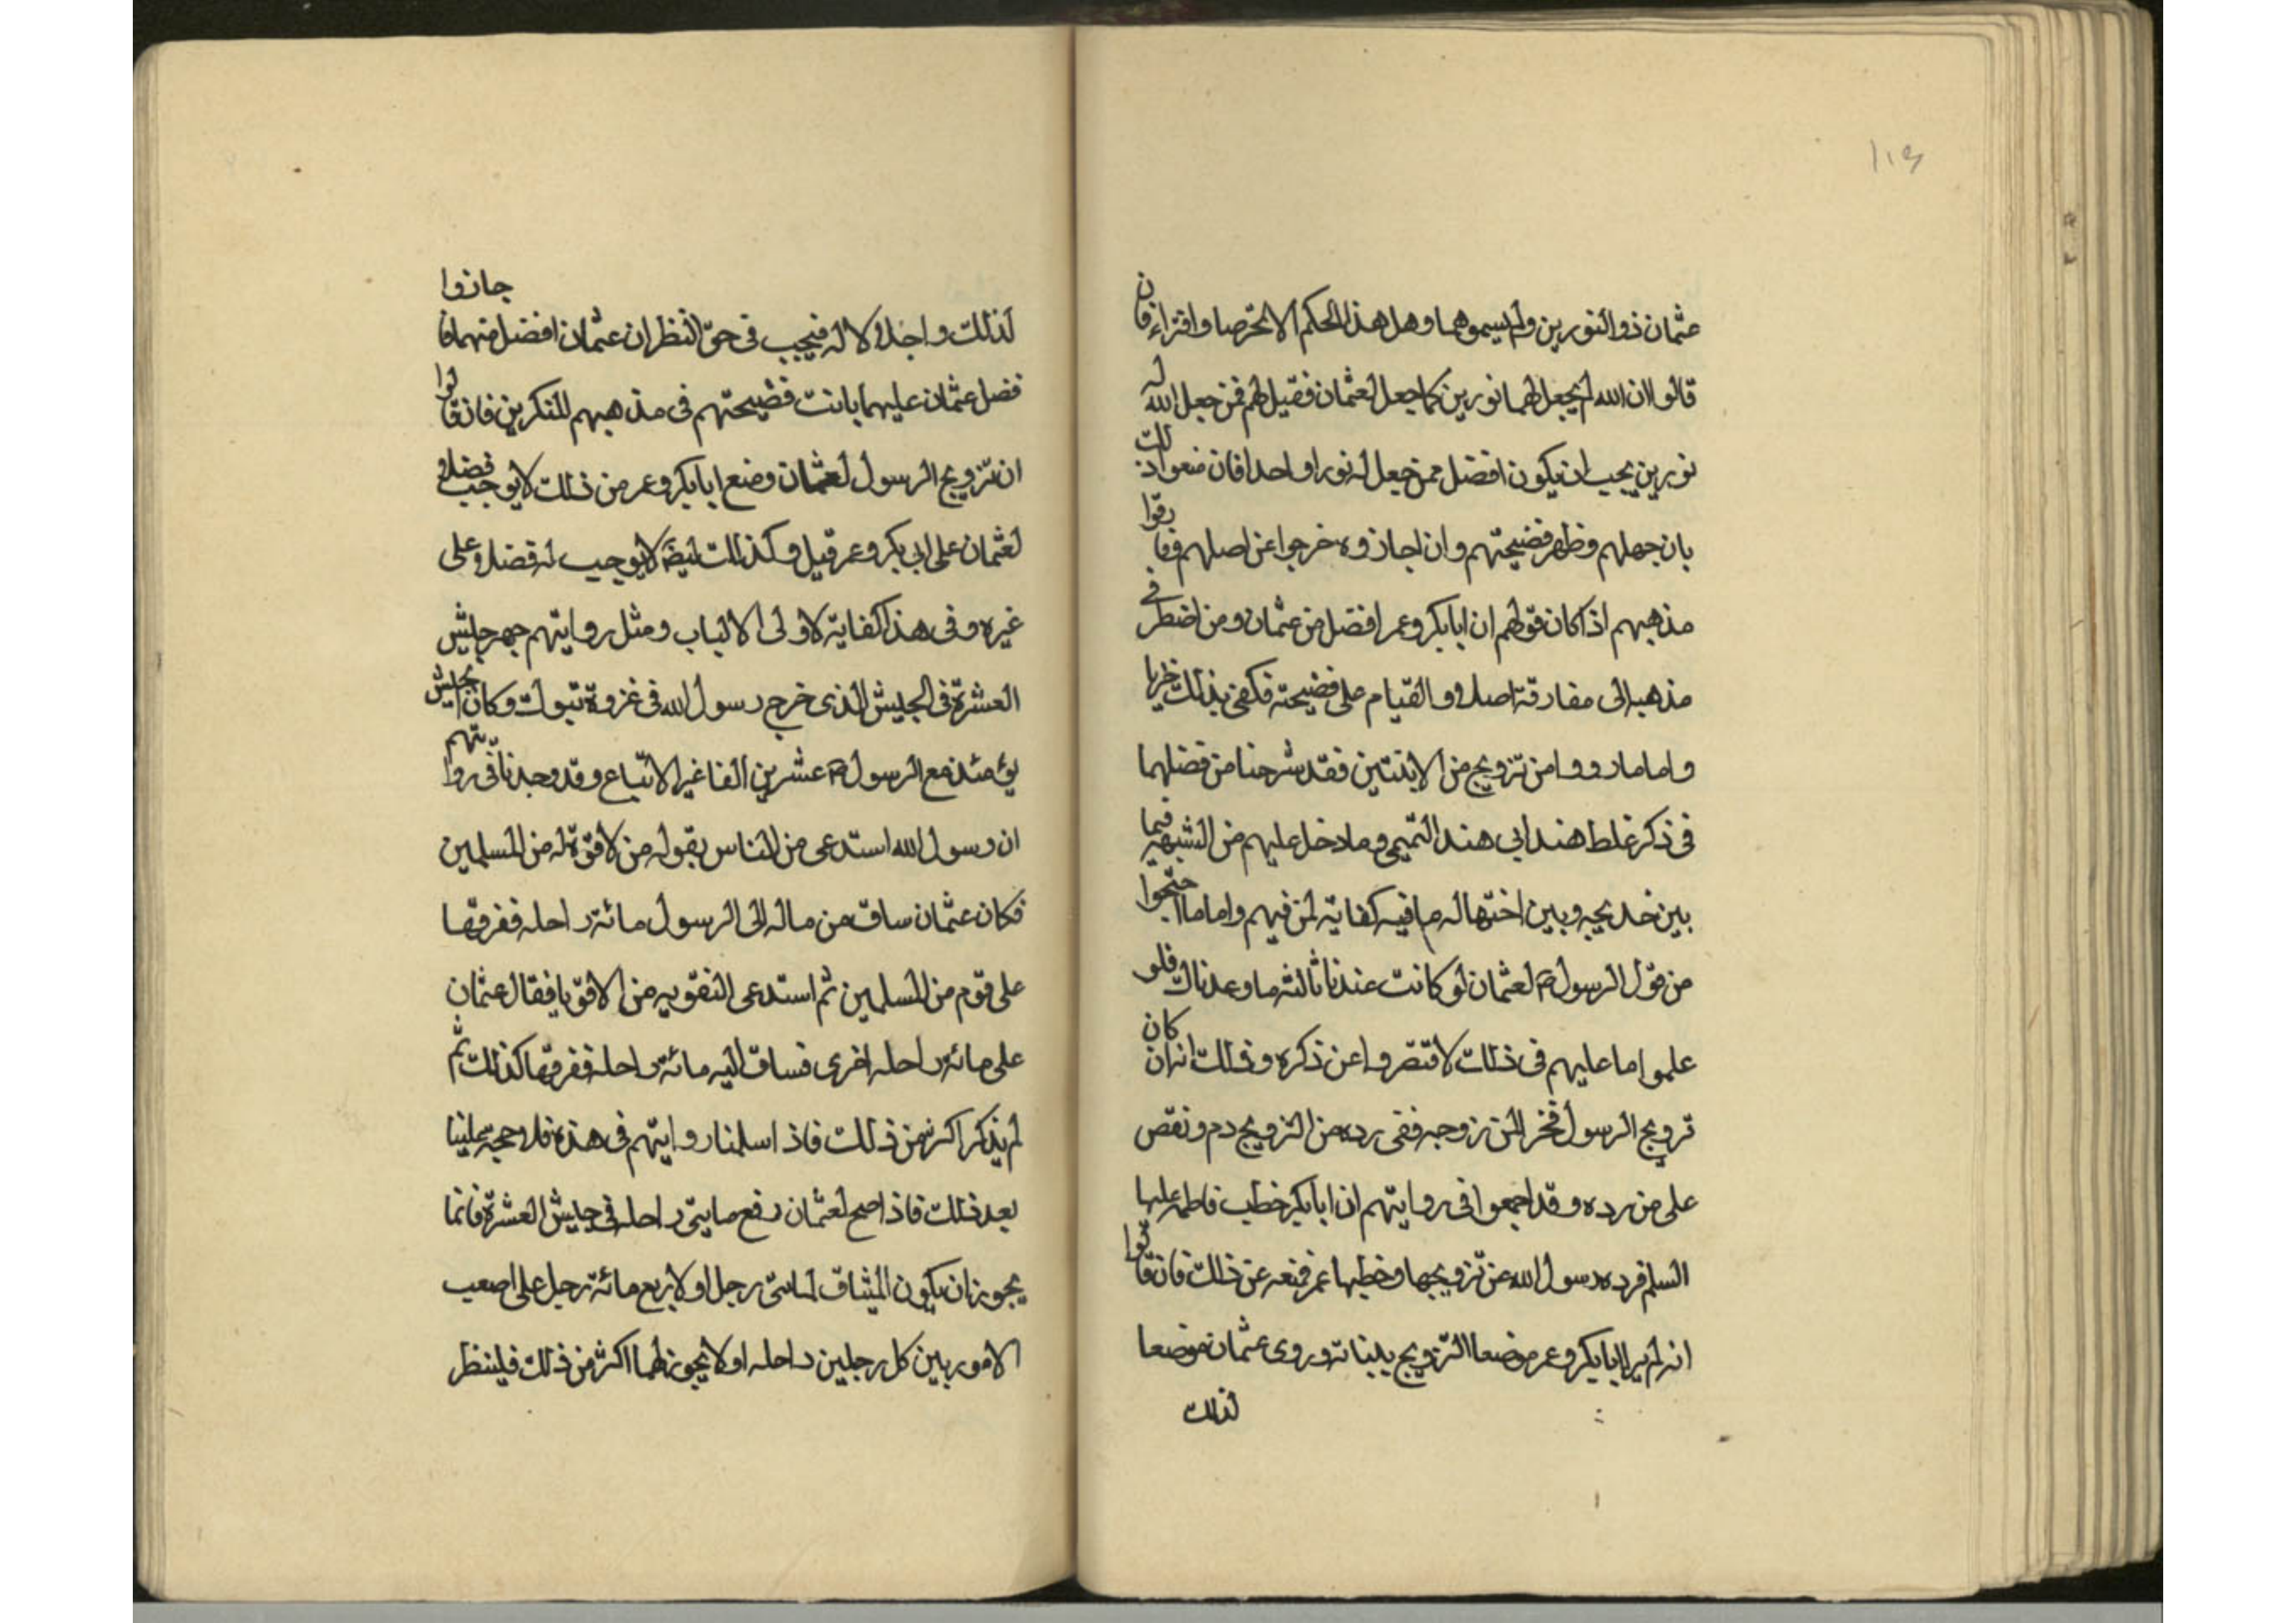 ١١٩
عثمان ذو النورين ولم يسموهما وهل هذا الحكم الا تخرصا وافتراء فان
قالوا ان الله لم يجعل لهما نورين كما جعل لعثمان فقيل لهم فمن جعل الله له
نورين يجب ان يكون افضل ممن جعل له نورا واحدا فان منعوا ذلك
بان جهلهم وظهر فضيحتهم وان اجازوه خرجوا عن اصلهم وفارقوا
مذهبهم اذا كان قولهم ان ابابكر وعمر افضل من عثمان ومن اضطر في
مذهبه الى مفارقة اصله والقيام على فضيحته فكفى بذلك خزيا
واما ما رووا من تزويج من الابنتين فقد شرحنا من فضلهما
فى ذكر غلط هند ابى هند التميمى وما دخل عليهم من الشبهة فيما
بين خديجه وبين اختها له ما فيه كفاية لمن فهم واما ما احتجوا
من قول الرسول لعثمان لو كانت عندنا ثالثه ما وعدناك فلو
علموا ما عليهم فى ذلك لاقتصروا عن ذكره وذلك انه ان كان
تزويج الرسول فخر المن زوجه ففى رده من التزويج دم ونقص
على من رده وقد اجمعوا فى روايتهم ان ابابكر خطب فاطمه عليها
السلم فرده رسول الله عن تزويجها وخطبها عمر فمنعه عن ذلك فان قالوا
انه لم ير ابابكر وعمر موضعا التزويج ببناته وروى عثمان موضعا
لذلك
لذلك واجلالا له فيجب فى حق النظر ان عثمان افضل منهما فان جازوا
فضل عثمان عليهما بانت فضيحتهم فى مذهبهم للمنكرين فان قالوا
ان تزويج الرسول لعثمان ومنع ابابكر وعمر من ذلك لا يوجب فضلا
لعثمان على ابى بكر وعمر قيل وكذلك ايضا لا يوجب له فضلا على
غيره وفى هذا كفاية لاولى الالباب ومثل روايتهم جهز جيش
العشرة فى الجيش الذى خرج رسول الله فى غزوة تبوك وكان الجيش
يومئذ مع الرسول عشرين الفا غير الاتباع وقد وجدنا فى روايتهم
ان رسول الله استدعى من الناس بقوله من لا قوة له من المسلمين
فكان عثمان ساق من ماله الى الرسول مائة راحله ففرقها
على قوم من المسلمين ثم استدعى التقويه من الاقويا فقال عثمان
على مائة راحله اخرى فساق اليه مائة راحله ففرقها كذلك ثم
لم يذكر اكثر من ذلك فاذا سلمنا روايتهم فى هذه فلا حجة علينا
بعد ذلك فاذا صح لعثمان رفع مايتى راحله فى جيش العشرة فانما
يجوز ان يكون الميثاق لماتى رجل او لاربع مائة رجل على اصعب
الامور بين كل رجلين راحله او لا يجوز لهما اكثر من ذلك فلينظر